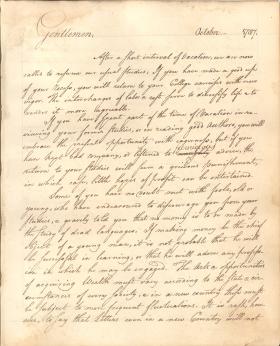 Gentlemen, October — 1787.
After a short interval of Vacation, we are now
called to resume our usual Studies. If you have made a good use
of your Recess, you will return to your College exercises with new
vigor. The interchanges of labor & rest serve to diversify life &
render it more agreeable.
If you have spent part of the time of Vacation in re-
viewing your former studies, or in reading good Authors, you will
embrace the present opportunity with eagerness, but if you
have kept bad company, & listened to advice, the
return to your Studies will seem a grievous punishment,
in which few, little hopes of profit can be entertained.
Some of you have no doubt met with fools, old or
young, who have endeavored to discourage you from your
Studies, & gravely told you that no money is to be made by
the study of dead languages. If making money be the chief
object of a young man, it is not probable that he will
be successful in learning, or that he will adorn any profess-
ion in which he may be engaged. The Arts & opportunities
of acquiring Wealth must vary according to the State & cir-
cumstances of every Society, & in a new country they must
be subject to more frequent fluctuations. It is rash, how-
ever, to say that Letters even in a new Country will not